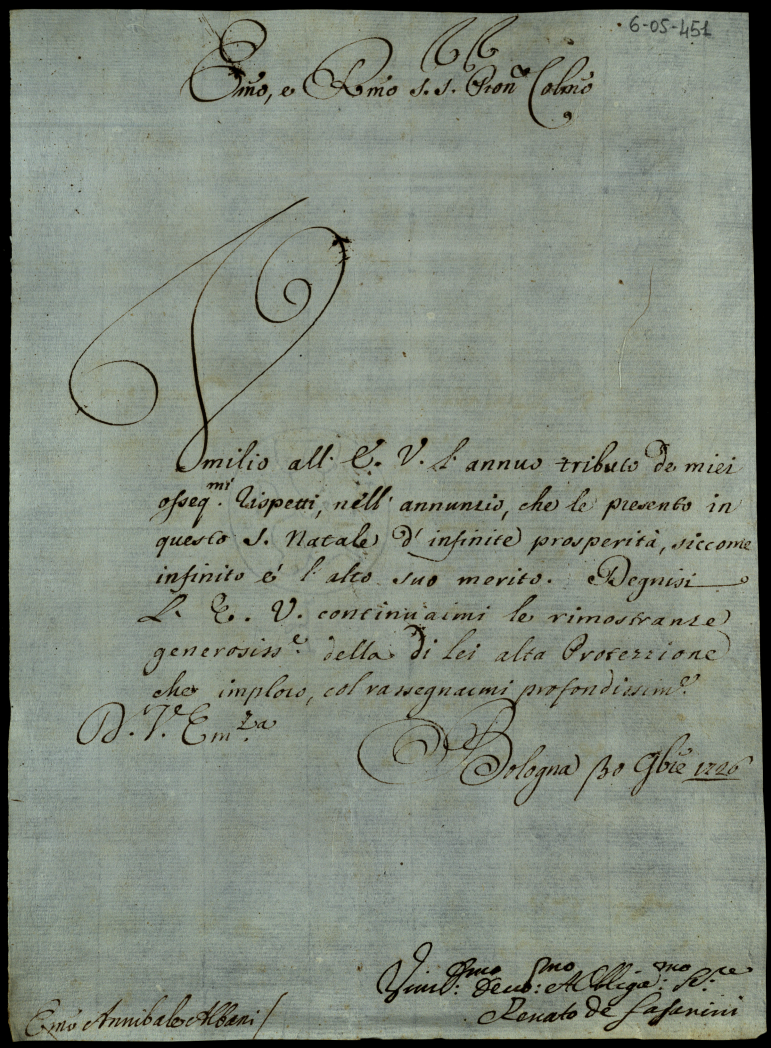 6-05-451
Emo, e Rmo S. S. Pron Colmo
Vmilio all' E. V. l' annuo tributo de miei
osseqmi. rispetti, nell' annunzio, che le presento in
questo S. Natale d' infinite prosperità, siccome
infinito é l' alto suo merito. Degnisi
L' E. V. continuarmi le rimostranze
generosisse. della di lei alta Protezzione
che imploro, col rassegnarmi profondissime.
D. V. Emza.
Bologna 30 9bre 1726
Vmilmo. Devo: mo Obligamo: Sere.
Renato de
Emo Annibale Albani /